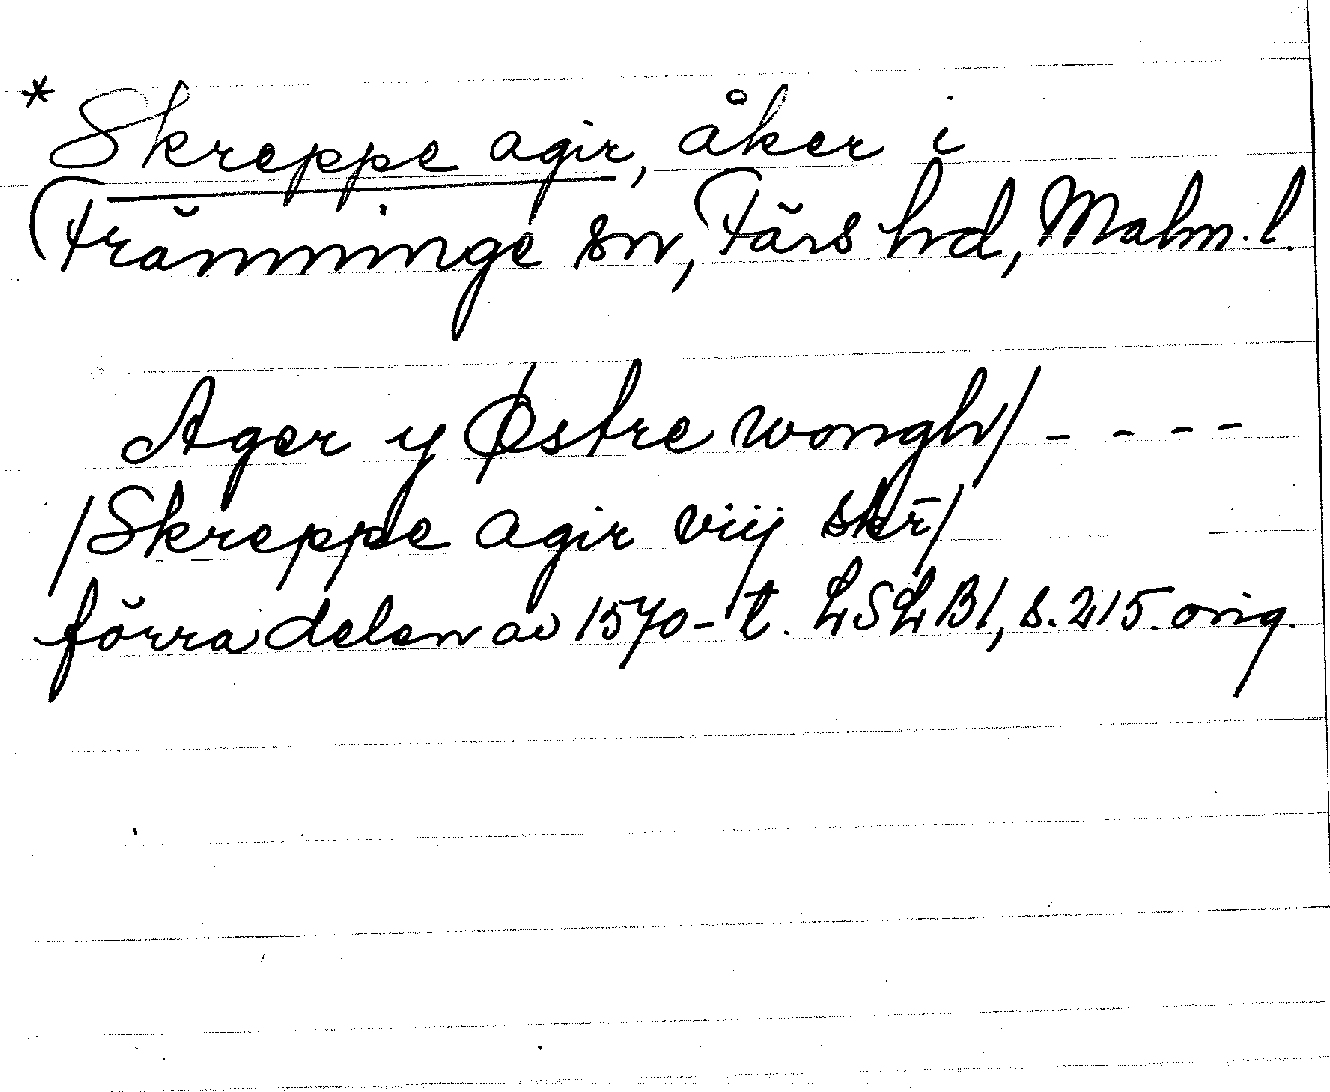 * Skreppe agir, åker i
Tränninge sn, Färs hd, Malm. l.
Ager y Østre wongh/ - - - -
/Skreppe agir viij skr̄/
förra delen av 1570-t. LSLB1, s. 215. orig.